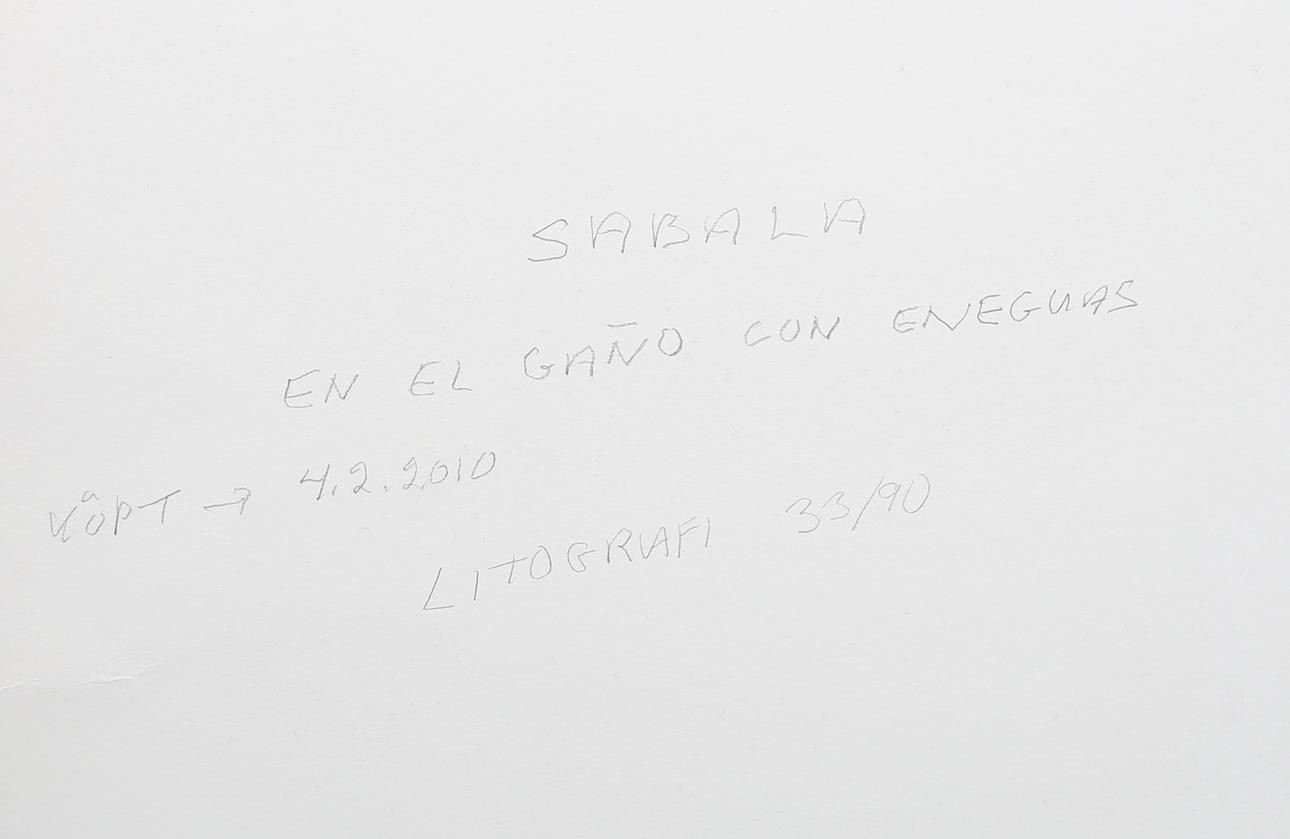 SABALA
EN EL GAÑO CON ENEGUAS
KÖPT → 4.2.2010
LITOGRAFI 33/90